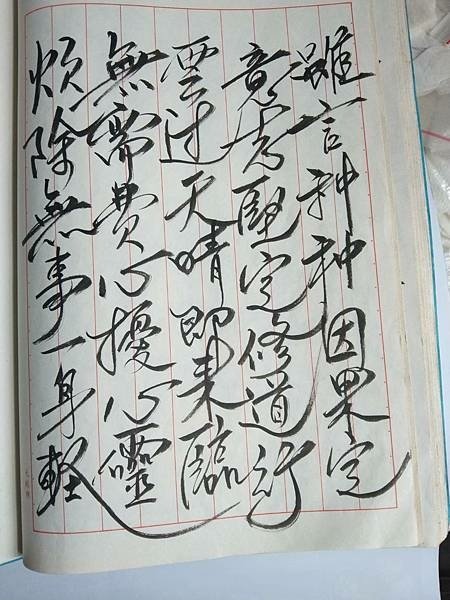 雖言种种因果定
意志堅定修道行
雲过天晴即来臨
無需費心擾心靈
煩除無事一身軽